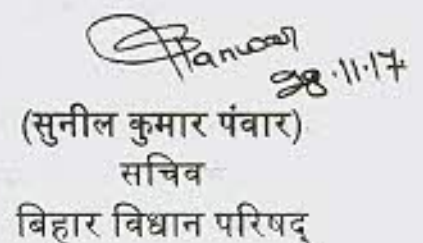 Panwar
28.11.17
(सुनील कुमार पंवार)
सचिव
बिहार विधान परिषद्